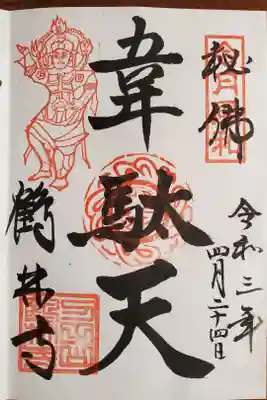 秘佛
令和三年
四月二十四日
韋駄天
鶴林寺